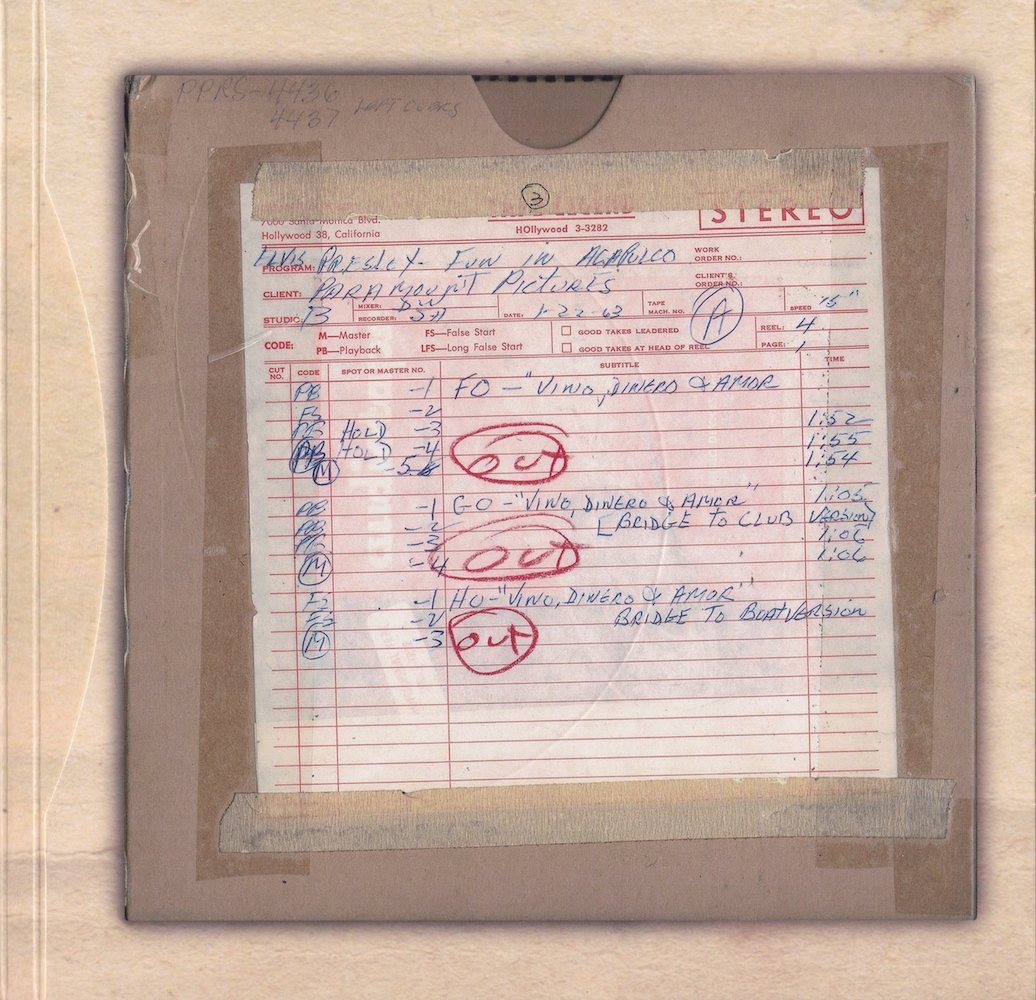 PPRS-4436
4437
3
7000 Santa Monica Blvd.
HOllywood 38, California
HOllywood 3-3282
STEREO
PROGRAM: ELVIS PRESLEY - FUN IN ACAPULCO WORK ORDER NO.:
CLIENT: PARAMOUNT PICTURES CLIENT'S ORDER NO.:
STUDIO: B MIXER: RECORDER: DATE: 1-22-63 TAPE MACH. NO. A SPEED 15"
CODE: M—Master FS—False Start GOOD TAKES LEADERED REEL: 4
PB—Playback LFS—Long False Start GOOD TAKES AT HEAD OF REEL PAGE: 1
CUT NO. CODE SPOT OR MASTER NO. SUBTITLE TIME
PB -1 FO - "VINO, DINERO & AMOR
FS -2
PB HOLD -3 1:52
PB HOLD -4 OUT 1:55
M -5 1:54
PB -1 GO - "VINO, DINERO & AMOR" 1:05
PB -2 [BRIDGE TO CLUB VERSION]
PB -3 OUT 1:06
M -4 1:06
FS -1 HO - "VINO, DINERO & AMOR"
FS -2 BRIDGE TO BOAT VERSION
M -3 OUT